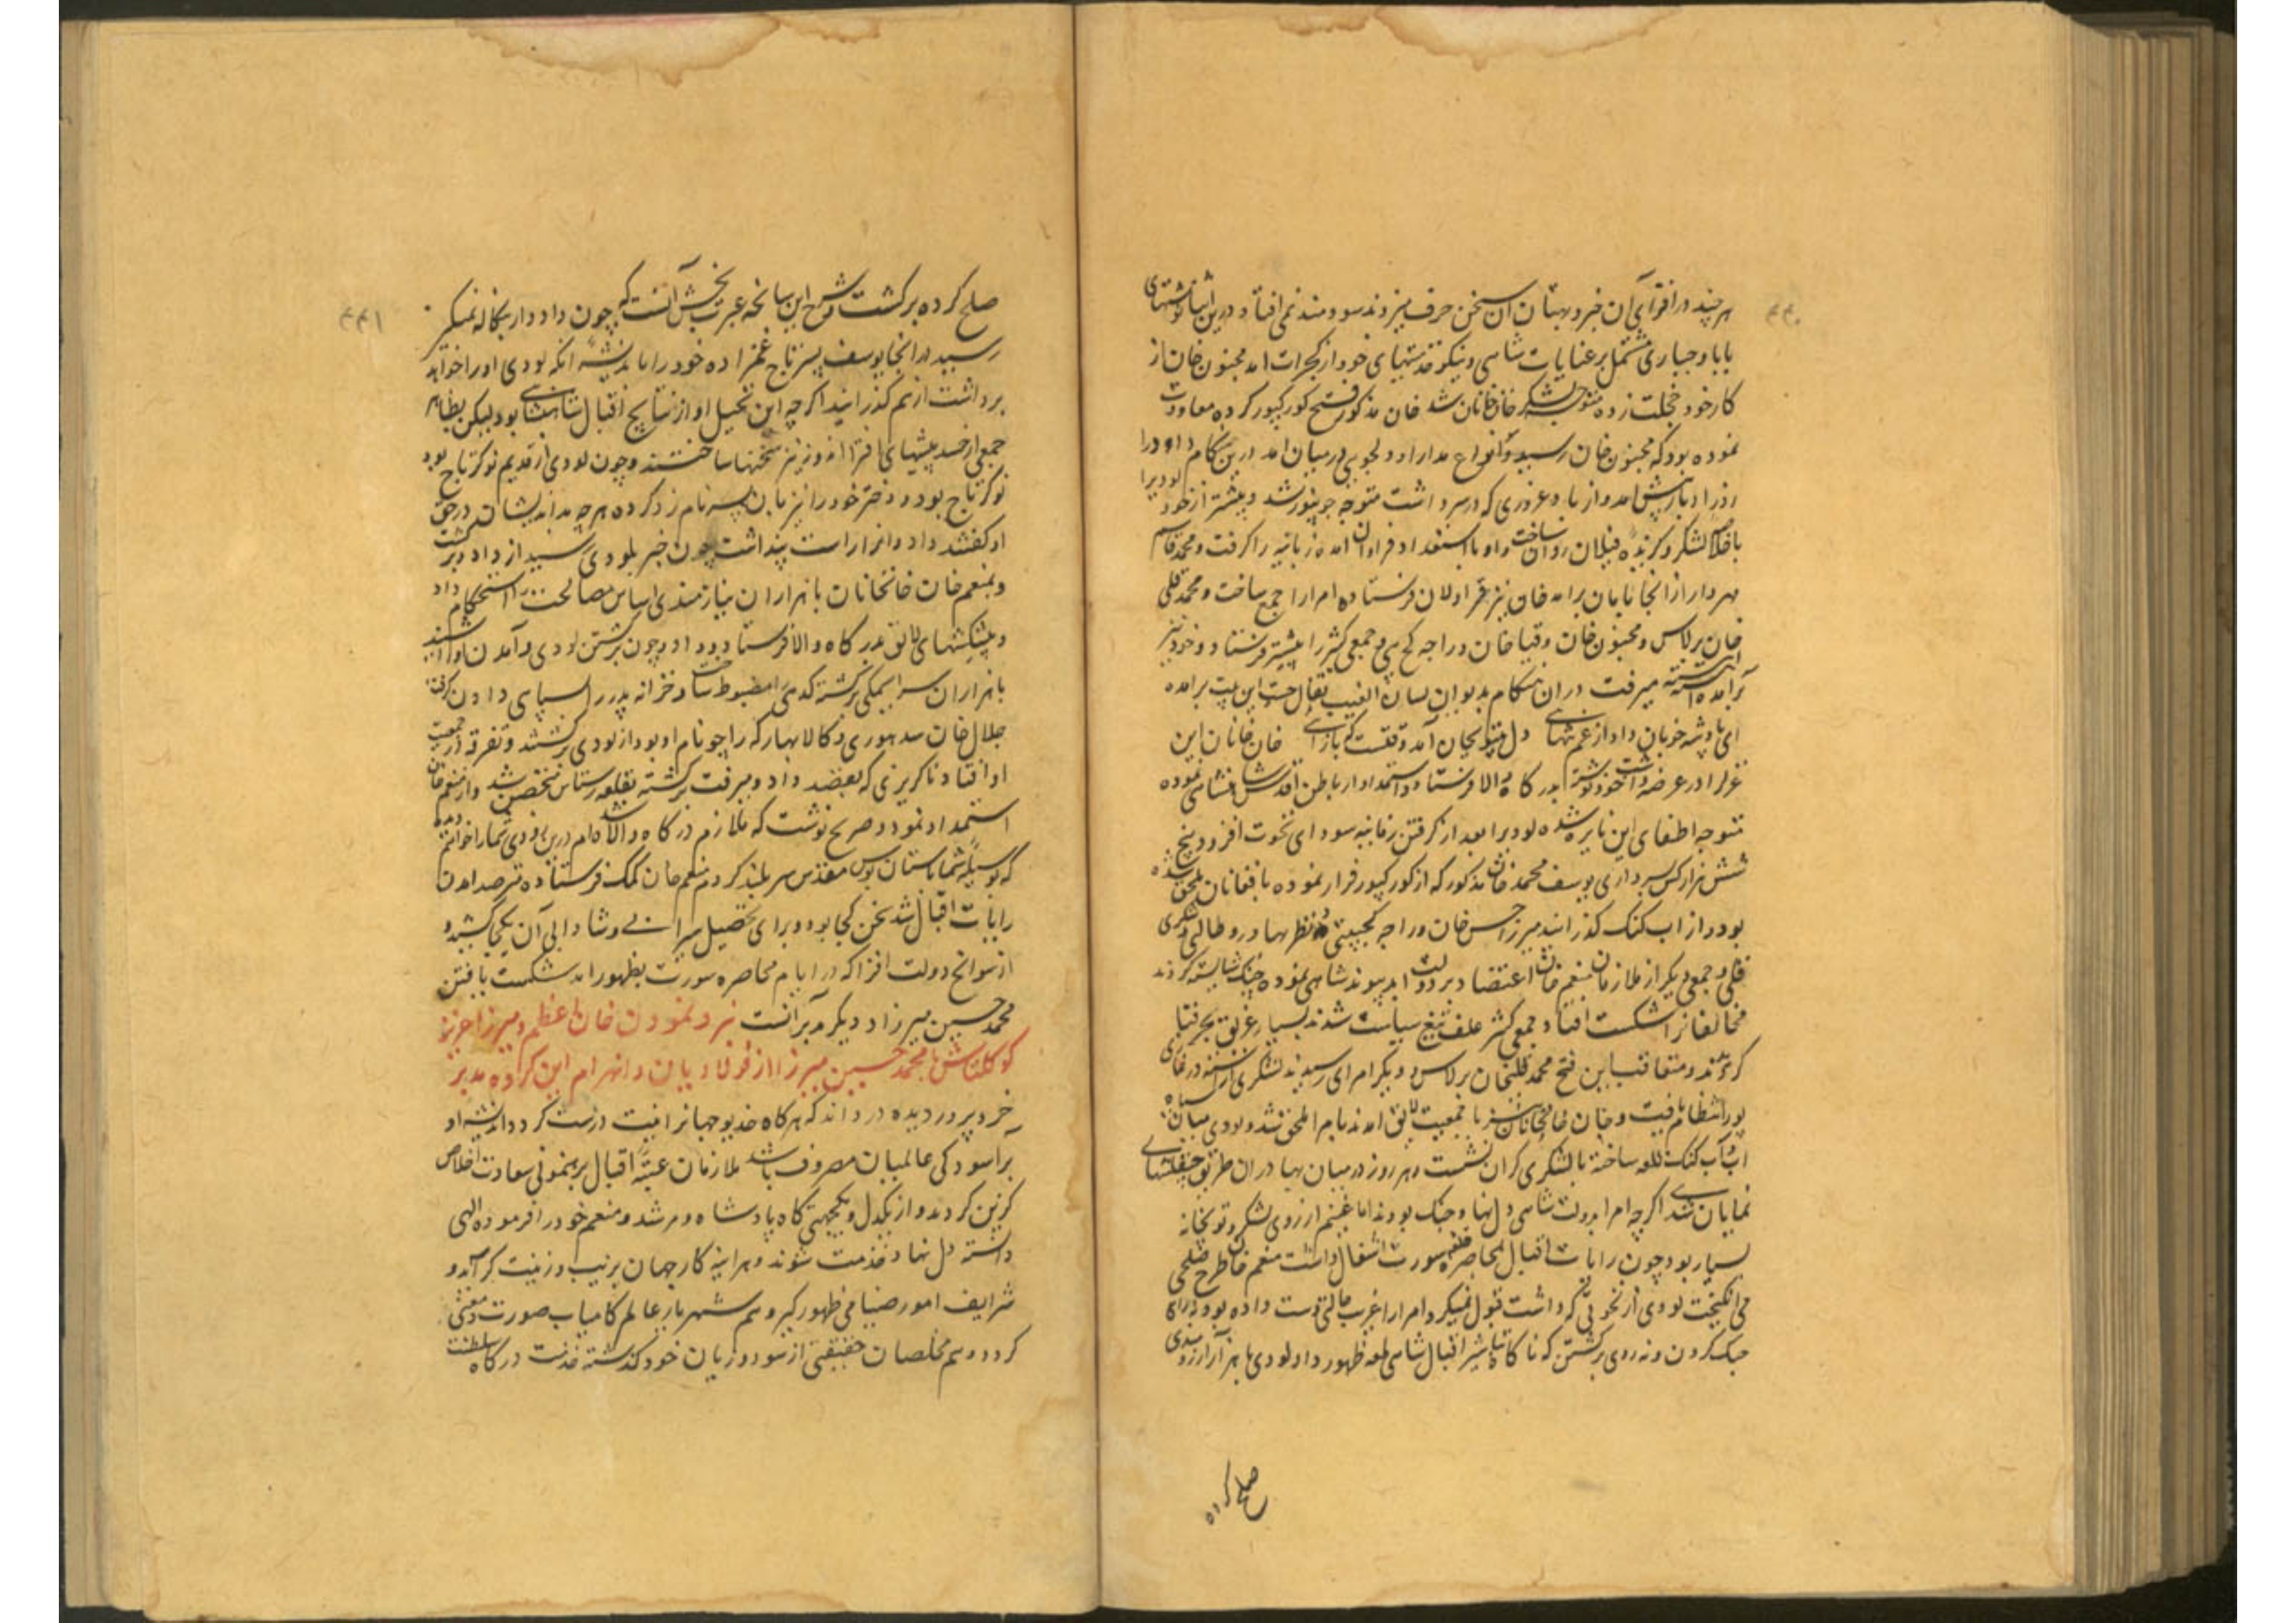 ۴۴۰
هر چند در افترای آن خبر و بهتان آن سخن حرف میزدند سودمند نمی افتاد و درین اثنا نوشتهای
بابا و جباری مشتمل بر عنایات شاهی و نیکو خدمتیهای خود از کجرات امد مجنون خان از
کار خود خجلت زده متوجه لشکر خانخانان شد خان مذکور فتح کورکپور کرده معاودت
نموده بود که مجنون خان رسید و انواع مدارا و دلجویی در میان امد درین هنکام داود را
روز ادبار پیش امد و از باد غروری که در سر داشت متوجه جونپور شد و پیشتر از خود لودیرا
با خلاصهٔ لشکر و کزیدهٔ فیلان روان ساخت و او با استعداد فراوان امده زمانیه را کرفت و محمد قاسم
مهردار از انجا بامان برامد خان نیز قراولان فرستاده امرا را جمع ساخت و محمد قلی
خان برلاس و مجنون خان و قیا خان و راجه کج پتی و جمعی کثیر را پیشتر فرستاد و خود نیز
برآمده اهسته اهسته میرفت در ان هنکام بدیوان لسان الغیب تفال جست این بیت برامده
ای پادشه خوبان داد از غم تنهایی دل بیتو بجان آمد وقتست که بازایی خان خانان این
غزل را در عرضه داشت خود نوشته بدرکاه والا فرستاد و استمداد از باطن اقدس شاهنشاهی نموده
متوجه اطفای این نایره شد لودیرا بعد از کرفتن زمانیه سودای نخوت افزود پنج
شش هزار کس بسرداری یوسف محمد خان مذکور که از کورکپور فرار نموده بافغانان ملحق شده
بود از اب کنک کذرانید میرزا حسن خان و راجه کجپتی و نظر بهادر و طالبی و شکری
قلی و جمعی دیکر از ملازمان منعم خان اعتضاد بر دولت ابد پیوند شاهی نموده جنک شایسته کردند
مخالفانرا شکست افتاد جمعی کثیر علف تیغ سیاست شدند بسیار غریق بحر فنا
کردیدند و متعاقب این فتح محمد قلیخان برلاس و دیکر امرای رسیدند لشکری اراسته در غازی
پور انتظام یافت و خان خانخانان نیز با جمعیت لایق امد بامرا ملحق شد و لودی میان
اب و آب کنک قلعه ساخته با لشکری کران نشست و هر روز در میان بهادران طریق چپقلشهای
نمایان شدی اکرچه امرا بدولت شاهی دل نهاد جنک بودند اما غنیم از روی لشکر و توپخانه
بسیار بود چون رایات اقبال بمحاصره قلعه سورت اشتغال داشت منعم خان طرح صلح
می انکیخت لودی از نخوتی که داشت قبول نمیکرد امرا را غریب حالتی دست داده بود نه رای
جنک کردن و نه روی برکشتن که ناکاه تباشیر اقبال شاهی طلوع ظهور داد لودی با هزار آرزومندی
صلح کرده
۴۴۱
صلح کرده برکشت و شرح این سانحهٔ عبرت بخش آنست که چون داود از بنکاله بمنکیر
رسید در انجا یوسف پسر تاج عمزاده خود را باندیشهٔ انکه لودی او را خواهد
برداشت از هم کذرانید اکرچه این تخیل او از نتایج اقبال شاهنشاهی بود لیکن بظاهر
جمعی از حسد پیشهای افترا اندوز نیز سخنها ساختند و چون لودی از قدیم نوکر تاج بود
نوکر تاج بود و دختر خود را نیز بان پسر نامزد کرده هر چه بد اندیشان در حق
او کفتند داود انرا راست پنداشت چون خبر بلودی رسید از داود برکشت
و بمنعم خان خانخانان با هزاران نیازمندی اساس مصالحت را استحکام داد
و پیشکشهای لایق بدرکاه والا فرستاد و داود چون برکشتن لودی و آمدن او شنید
با هزاران سراسیمکی برکشته کدی را مضبوط ساخت و خزانه پدر را بسپاهی دادن کرفت
جلال خان سدهوری و کالا پهار که راجو نام او بود از لودی برکشتند و تفرقه در جمعیت
او افتاد ناکزیر که بقصد داود میرفت برکشته بقلعه رهتاس متحصن شد و از منعم خان
استمداد نمود و صریح نوشت که ملازم درکاه والا شده ام درین زودی شما را خواهم دید
که بوسیلهٔ شما باستان بوس مقدس سربلند کردم منعم خان کمک فرستاده مترصد امدن
رایات اقبال شد سخن کجا بود و برای تحصیل سیرابی و شادابی آن بکجا کشید
از سوانح دولت افزا که در ایام محاصره سورت بظهور امد شکست یافتن
محمد حسین میرزا و دیکر مدبرانست نبرد نمودن خان اعظم و میرزا عزیز
کوکلتاش با محمد حسین میرزا از فولادیان و انهزام این کروه مدبر
خرد پرور دیده ور داند که هرکاه خدیو جهانرا نیت درست کردد و اندیشه او
برآسودکی عالمیان مصروف باشد ملازمان عتبهٔ اقبال برهنمونی سعادت اخلاص
کزین کردند و از یکدلی و یکجهتی کاه پادشاه و مرشد و منعم خود را فرموده الهی
دانسته دل نهاد خدمت شوند و هر اینه کار جهان بزیب و زینت کراید و
شرایف امور صنیا می ظهور کیرد و هم شهریار عالم کامیاب صورت و معنی
کردد و هم مخلصان حقیقی از سود و زیان خود کذشته خدمت درکاه سلطنت